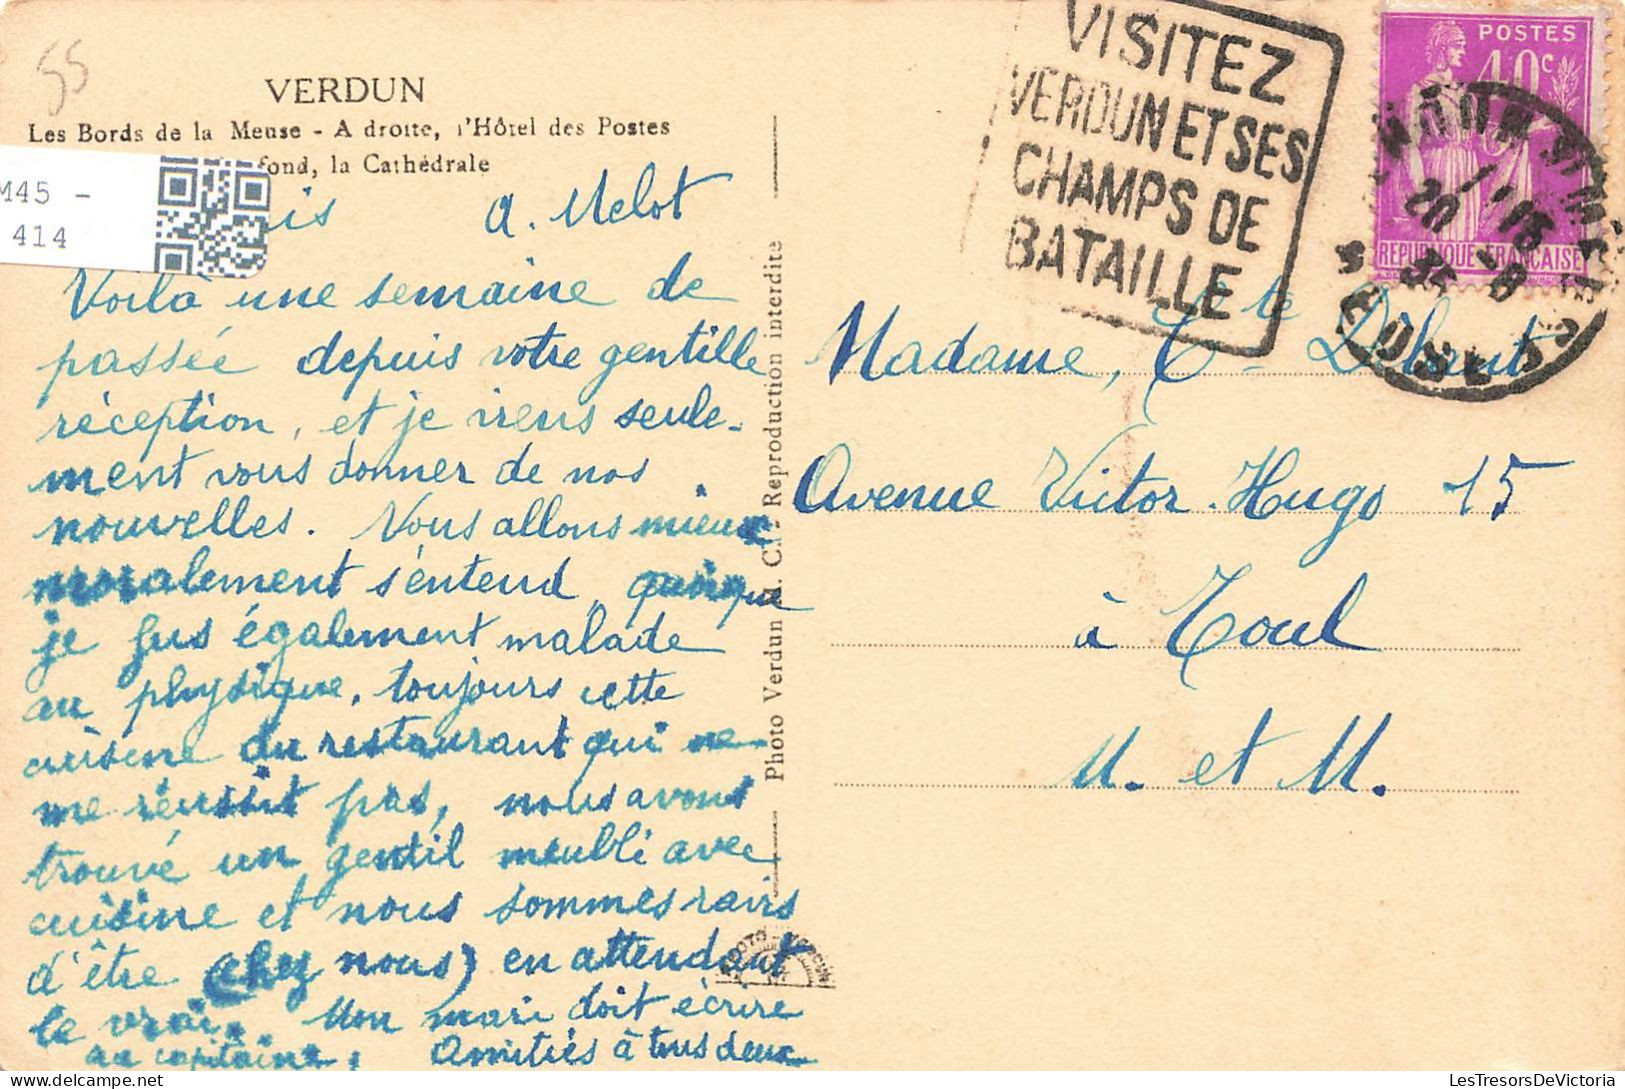 55
VERDUN
Les Bords de la Meuse - A droite, l'Hôtel des Postes
fond, la Cathédrale
M45 -
414
A. Melot
Voilà une semaine de
passée depuis votre gentille
réception, et je viens seule-
ment vous donner de nos
nouvelles. Nous allons mieux
moralement s'entend, quoique
je fus également malade
au physique, toujours cette
cuisine du restaurant qui ne
me réussit pas, nous avons
trouvé un gentil meublé avec
cuisine et nous sommes ravis
d'être (chez nous) en attendant
le vrai. Mon mari doit écrire
au capitaine, Amitiés à tous deux
Photo Verdun C. - Reproduction interdite
VISITEZ
VERDUN ET SES
CHAMPS DE
BATAILLE
POSTES
40c
REPUBLIQUE FRANCAISE
VERDUN S/ MEUSE
20
35
MEUSE
Madame, Cte
Avenue Victor-Hugo 15
à Toul
M. et M.
LesTresorsDeVictoria